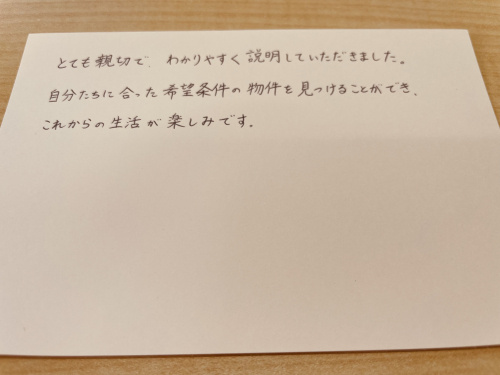 とても親切で、わかりやすく説明していただきました。
自分たちに合った希望条件の物件を見つけることができ、
これからの生活が楽しみです。